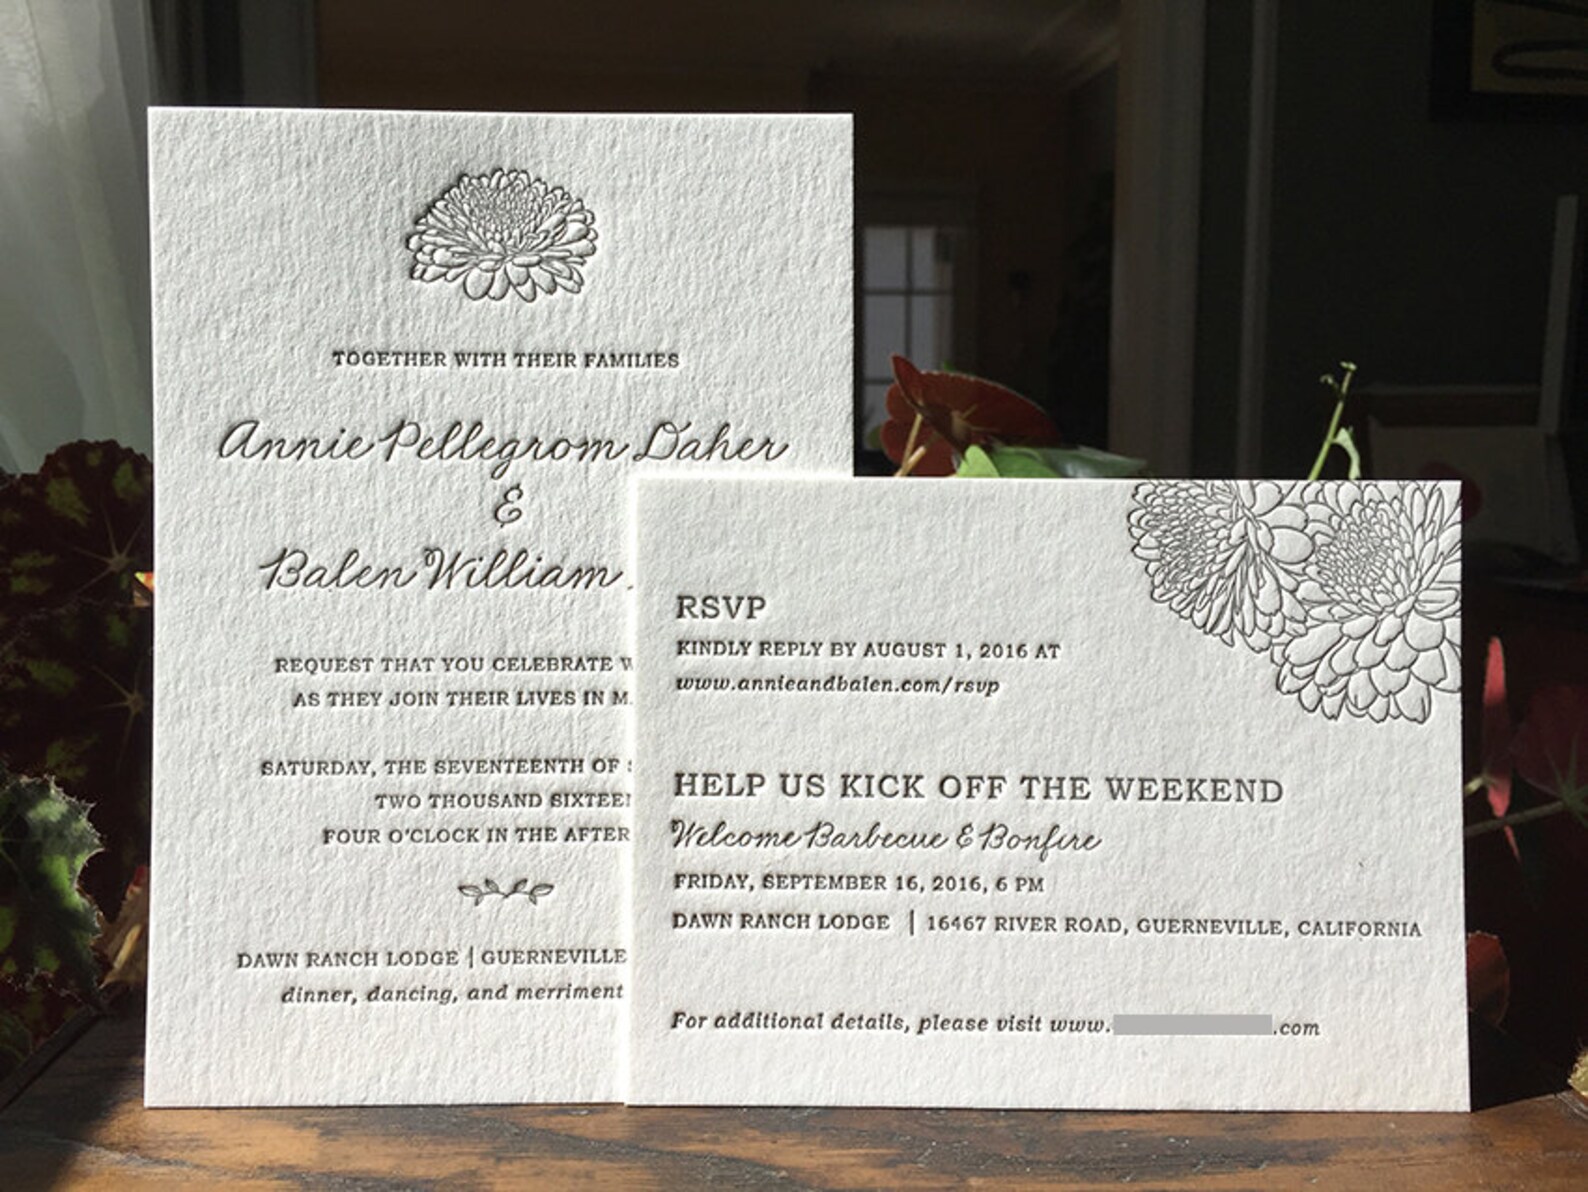 TOGETHER WITH THEIR FAMILIES
Annie Pellegrom Daher
&
Balen William
REQUEST THAT YOU CELEBRATE
AS THEY JOIN THEIR LIVES IN
SATURDAY, THE SEVENTEENTH OF
TWO THOUSAND SIXTEEN
FOUR O'CLOCK IN THE AFTER
DAWN RANCH LODGE | GUERNEVILLE
dinner, dancing, and merriment
RSVP
KINDLY REPLY BY AUGUST 1, 2016 AT
www.annieandbalen.com/rsvp
HELP US KICK OFF THE WEEKEND
Welcome Barbecue & Bonfire
FRIDAY, SEPTEMBER 16, 2016, 6 PM
DAWN RANCH LODGE | 16467 RIVER ROAD, GUERNEVILLE, CALIFORNIA
For additional details, please visit www. .com